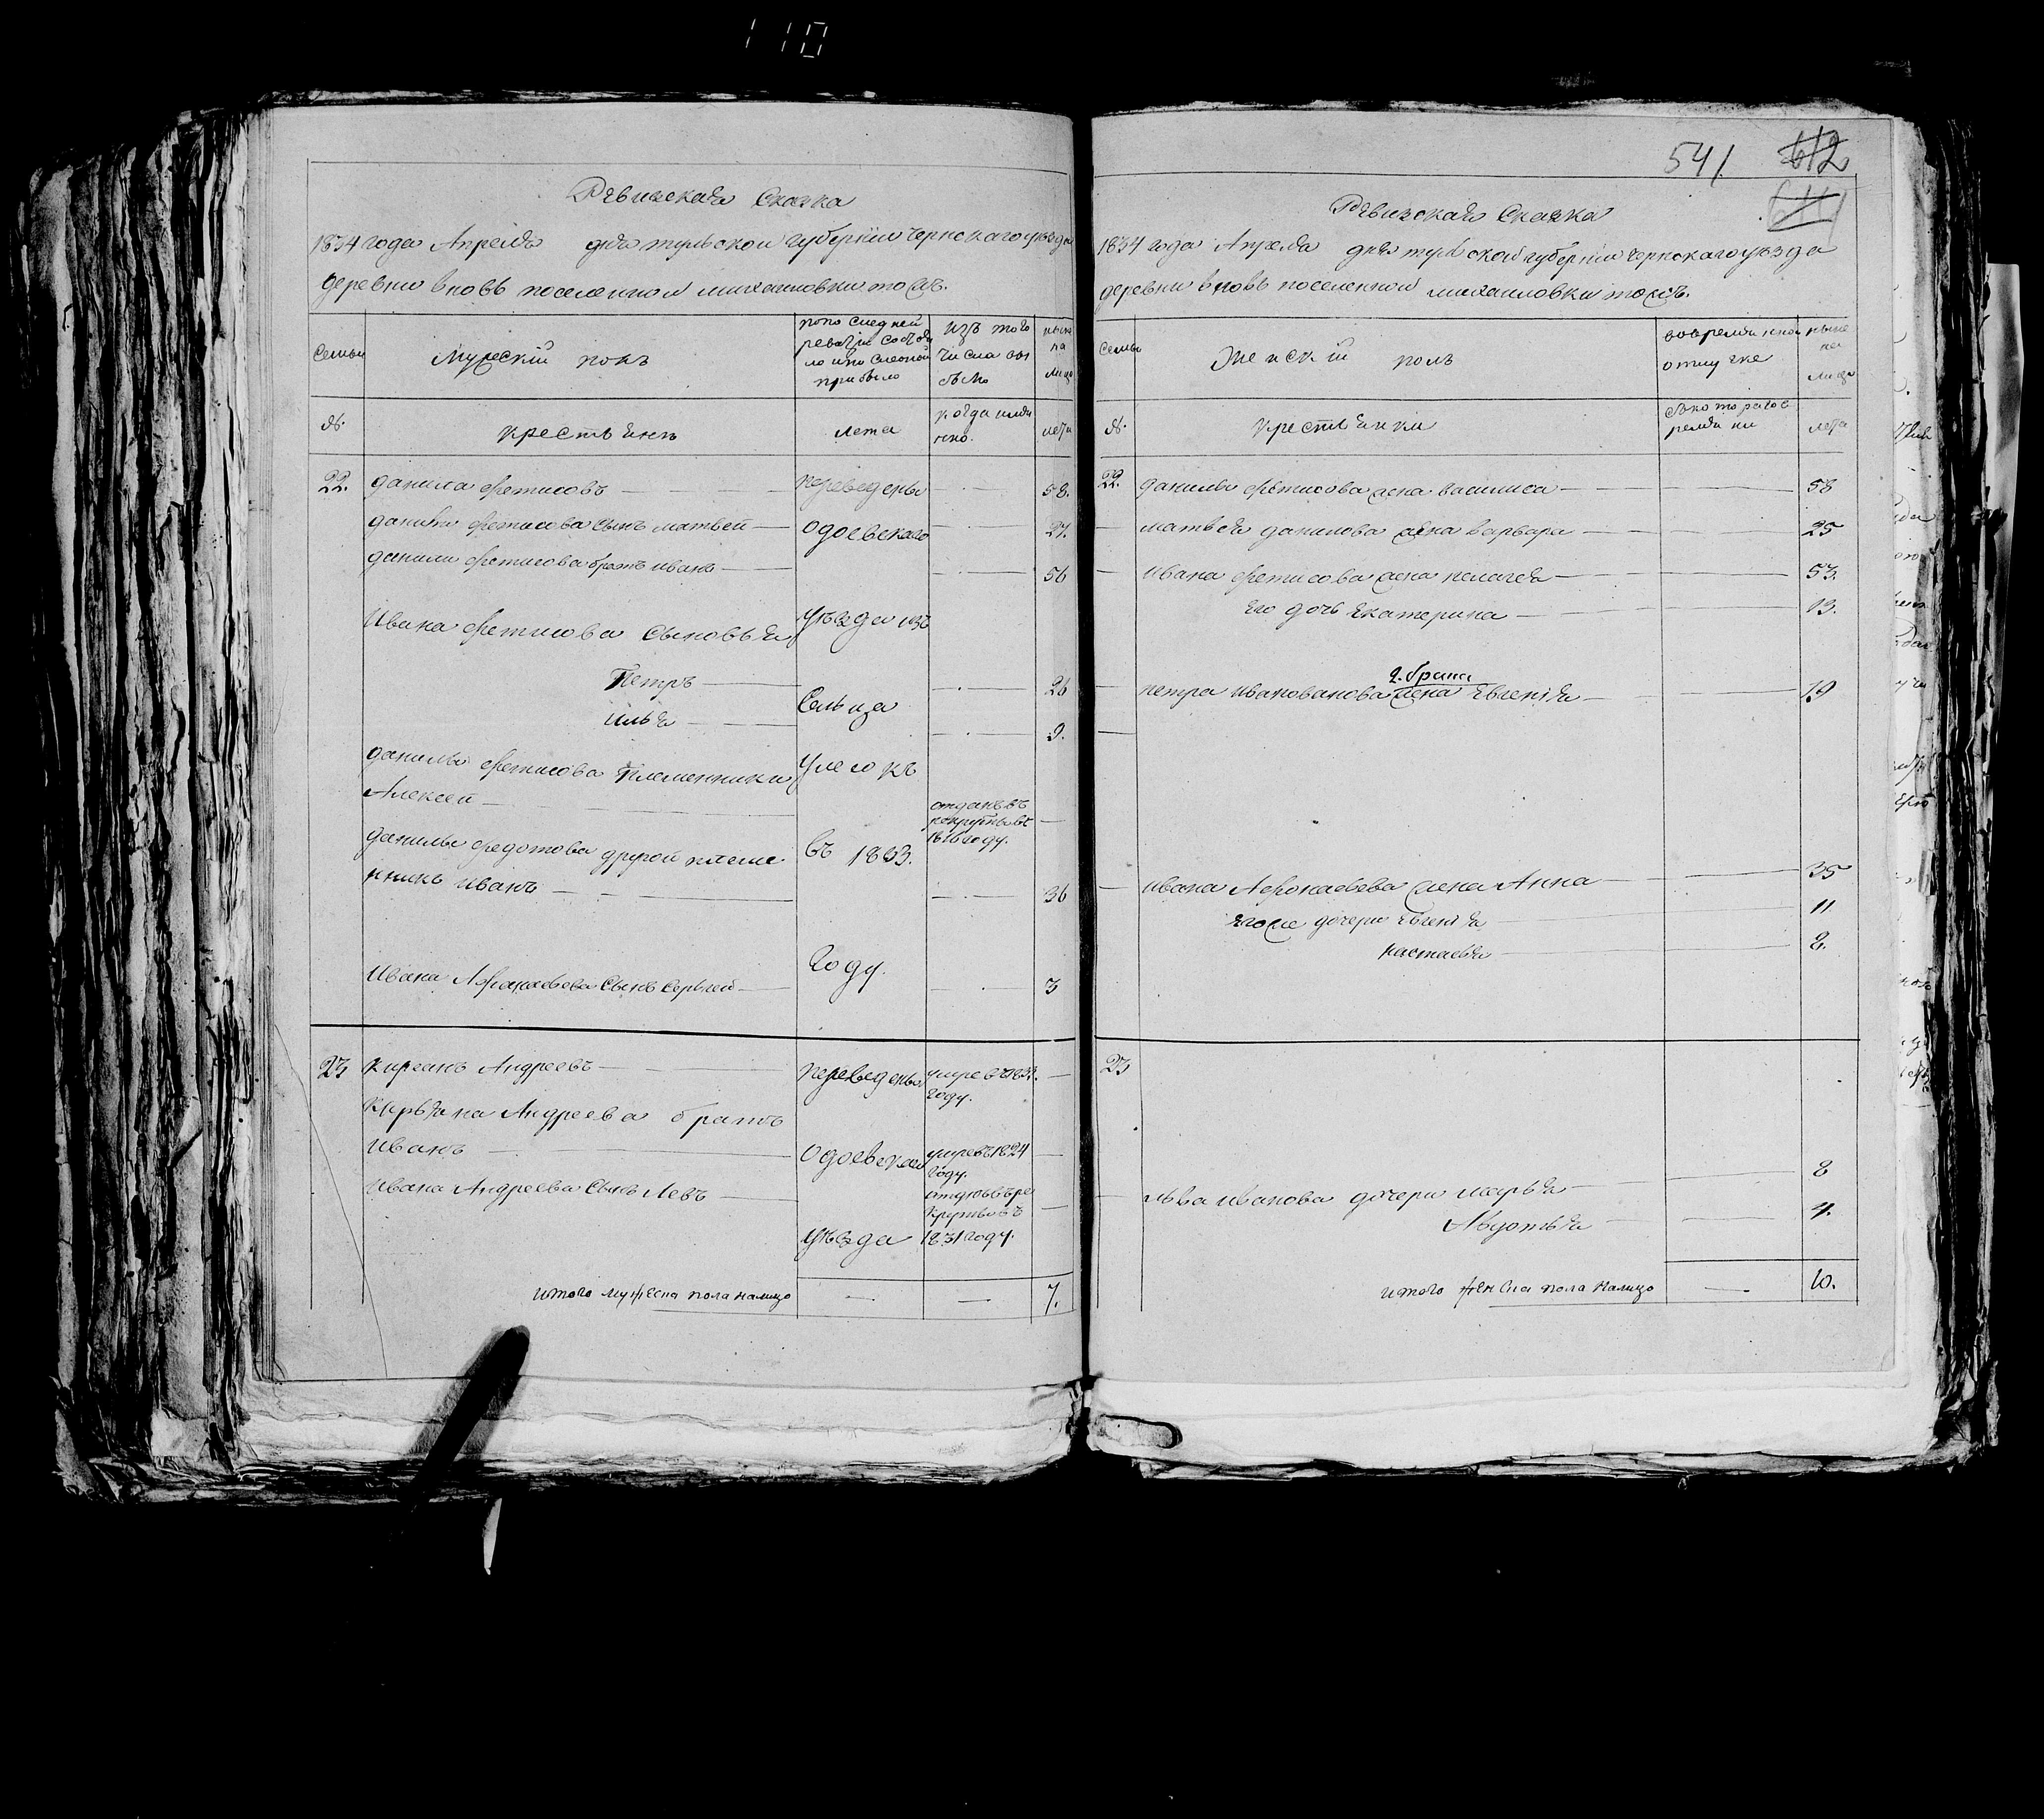 110
Ревизская Сказка
1834 года Апреля дня тульской губернии чернского уезда
деревни вновь поселенной михаиловки тожъ.
семьи
Мужескій полъ
изъ того числа выбыло
ныне на лицо
№.
крестьяня
лета
когда имянно.
лета
22. данила фетисовъ — переведены — 58.
данилы фетисова сынъ матвей — одоевскаго — 27.
данилы фетисова братъ иванъ — 56
Ивана фетисова сыновья уезда изъ
Петръ — 26
Сельца
илья — 9.
данилы фетисова племянники
Алексей — отданъ въ рекруты въ 1816 году. —
данилы федотова другой племянникъ иванъ — въ 1833. — 36
году.
Ивана Афонасьева сынъ сергей — 3
23 кирсанъ Андреевъ — переведены
году. —
Андреева братъ
иванъ — одоевскаго умре въ 1824 году. —
ивана Андреева сынъ Левъ — отданъ въ рекруты въ 1831 году. —
уезда
итого мужеска пола налицо — — 7.
541 612
Ревизская Сказка
1834 года Апреля дня тульской губернии чернского уезда
деревни вновь поселенной михаиловки тожъ.
семьи
Женскій полъ
во временной отлучке
ныне на лицо
№.
крестьянки
съ котораго времяни
лета
22. данилы фетисова жена василиса — 58
матвея данилова жена варвара — 25
ивана фетисова жена пелагея — 53.
его дочь екатерина — 13.
петра жена евгенія — 19
ивана Афонасьева жена Анна — 35
его же дочери евгенія 11
настасья — 8.
23
льва иванова дочери марья — 8
Авдотья — 4.
итого женска пола налицо — 10.